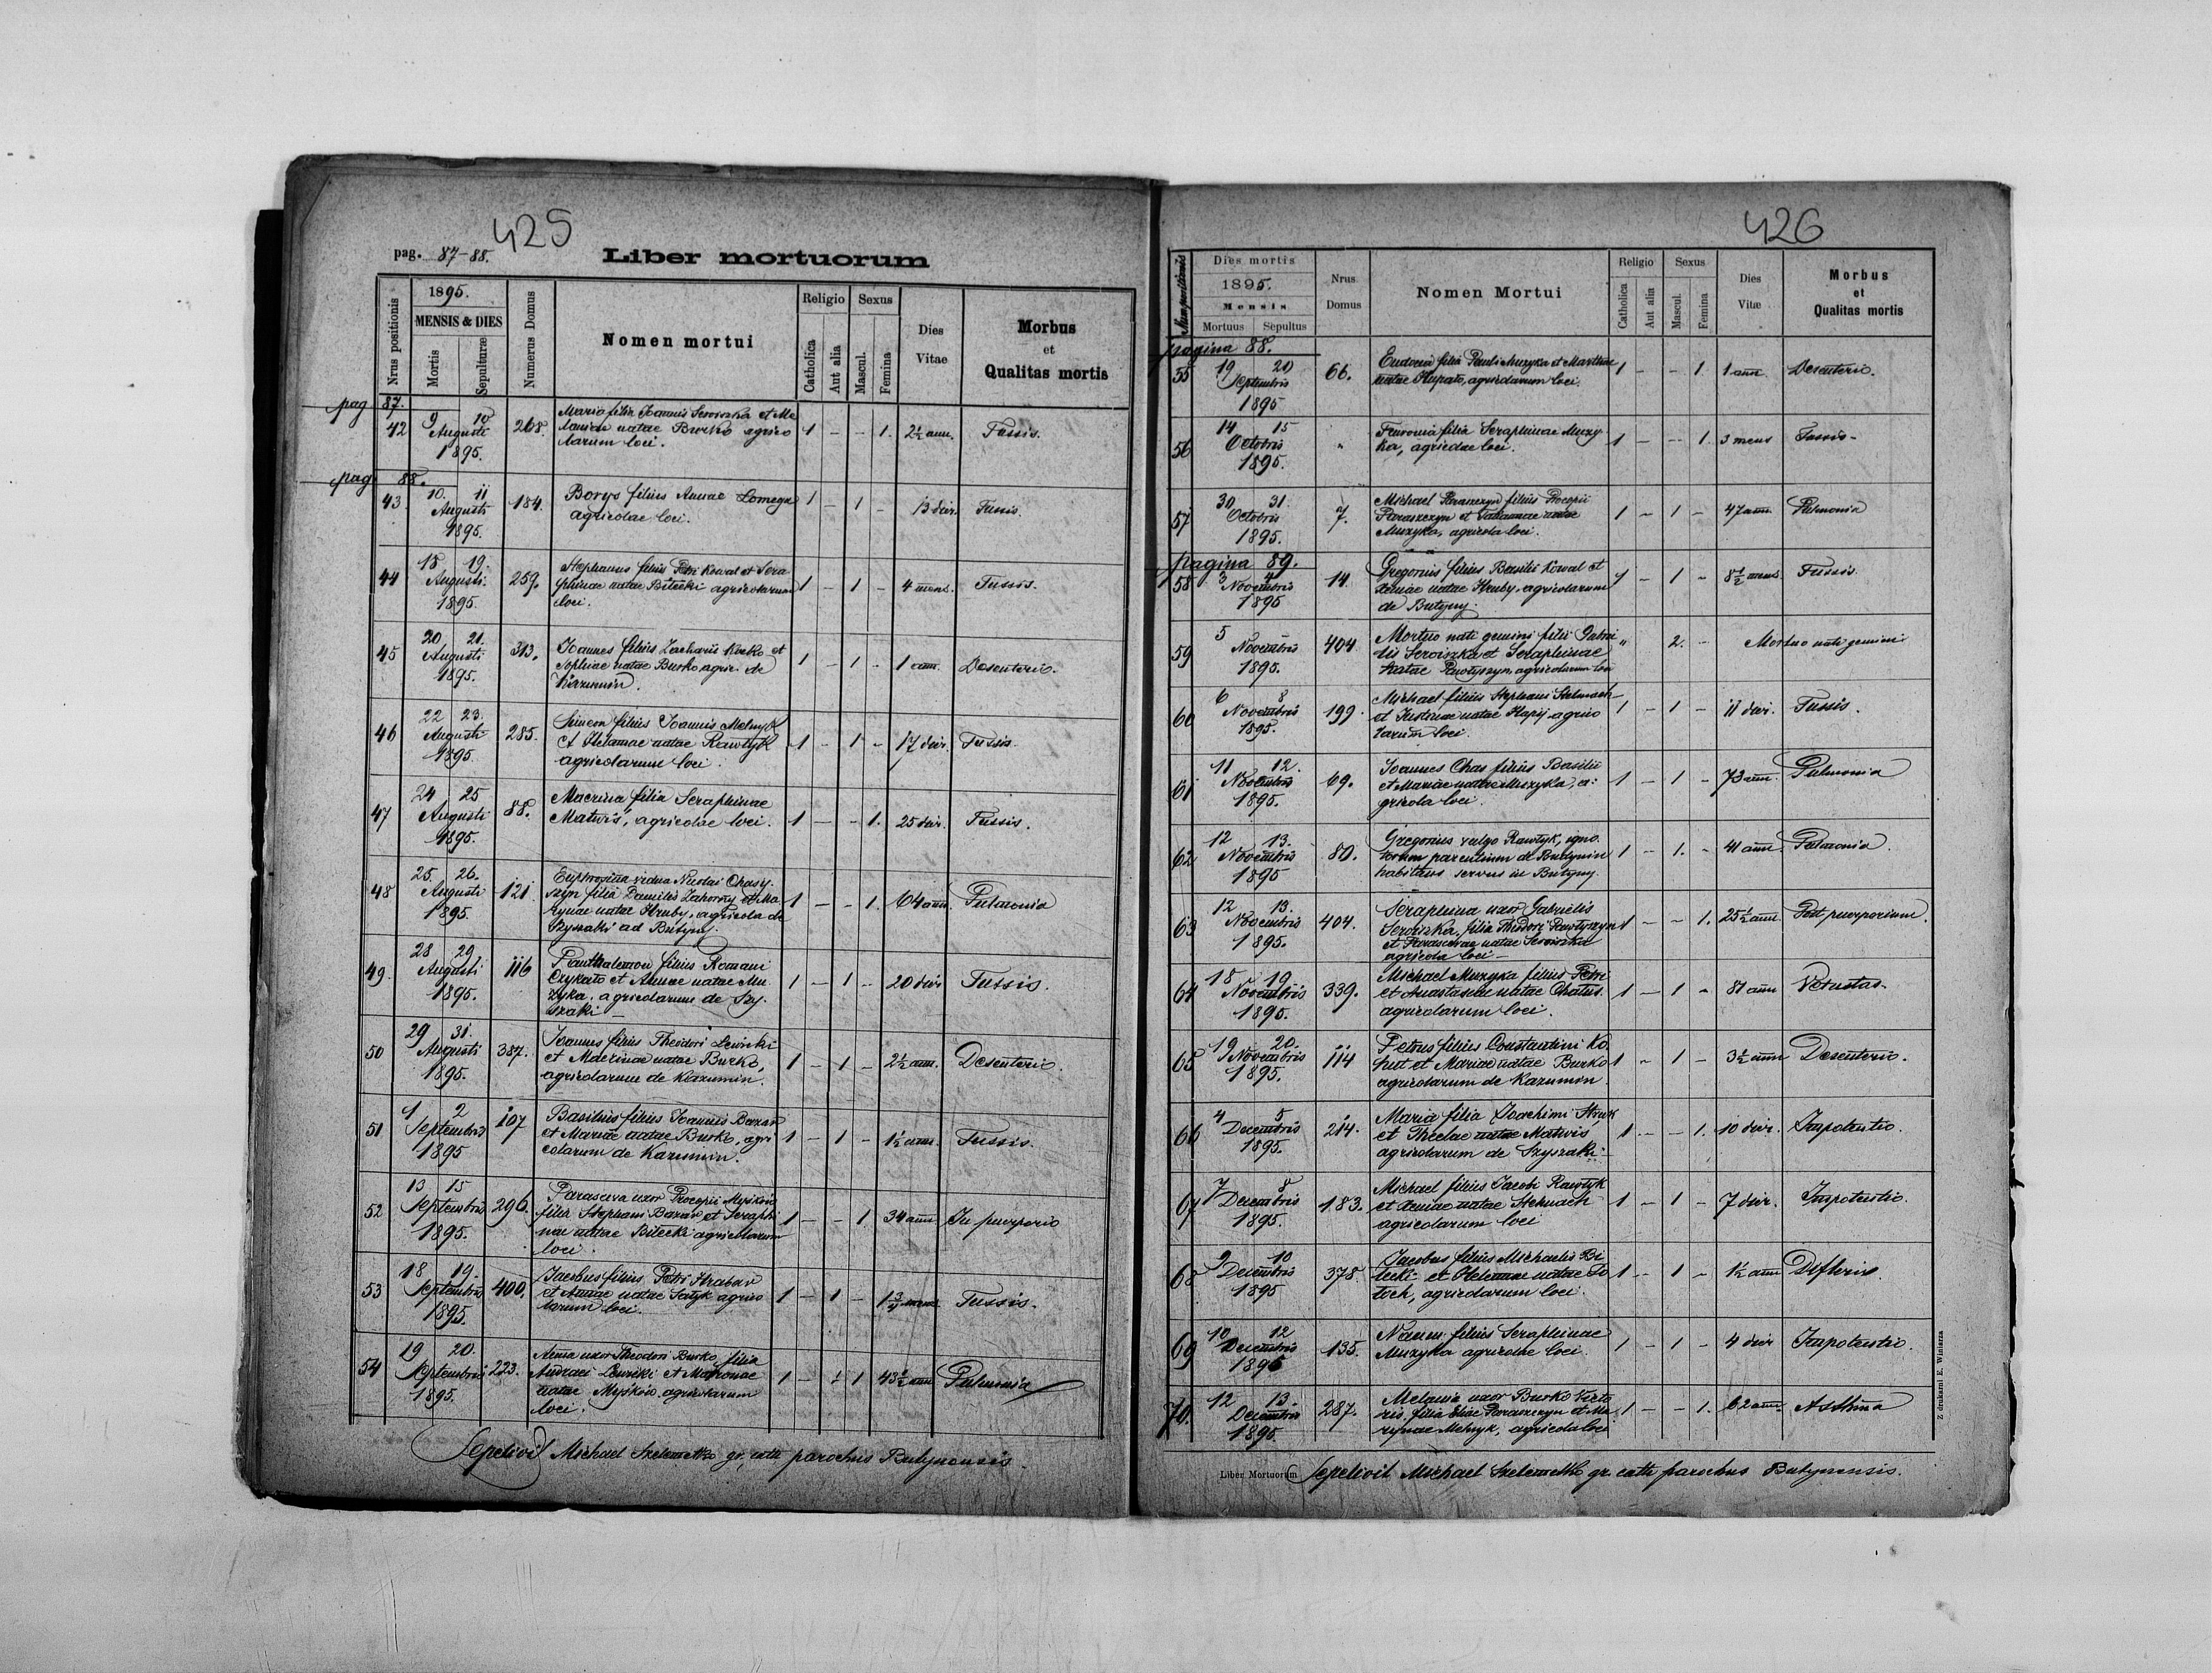 425
pag. 87-88.
Liber mortuorum
Nrus positionis
1895.
MENSIS & DIES
Mortis
Sepulturæ
Numerus Domus
Nomen mortui
Religio
Catholica
Aut alia
Sexus
Mascul.
Femina
Dies
Vitae
Morbus
et
Qualitas mortis
pag 87.
42 9 10 Augusti 1895. 268. 1 — — 1. 2½ ann. Tussis.
Maria filia Joannis Serwiszka et Me
laniae natae Burko agrico
larum loci.
pag 88.
43 10. 11 Augusti 1895. 184. 1 — 1 — 13 dier. Tussis.
Borys filius Annae Lomega
agricolae loci.
44 18 19. Augusti 1895. 259. 1 — 1 — 4 mens. Tussis.
Stephanus filius Petri Kowal et Sera
phinae natae Bilecki agricolarum
loci.
45 20 21. Augusti 1895. 313. 1 — 1 — 1 ann. Desenterio.
Joannes filius Zachariі Kocko et
Sophiae natae Burko agric. de
Kazumin.
46 22 23. Augusti 1895. 285. 1 — 1 — 17 dier. Tussis.
Simeon filius Joannis Melnyk
et Helenae natae Rawlyk
agricolarum loci.
47 24 25 Augusti 1895. 88. 1 — — 1. 25 dier. Tussis.
Macrina filia Seraphinae
Matwis, agricolae loci.
48 25. 26. Augusti 1895. 121. 1 — — 1. 64 ann. Pulmonia
Euphrosina vidua Nicolai Chasy-
szyn filia Danilis Zahorny et Ma
rynae natae Hruby, agricola de
Szyszaki ad Butyny.
49. 28 29 Augusti 1895. 116 1 — 1 — 20 dier Tussis.
Panthalemon filius Romani
Czykato et Annae natae Mu
zyka, agricolarum de Szy-
szaki —
50 29 31. Augusti 1895. 387. 1 — 1 — 2½ ann. Desenterio.
Joannes filius Theodori Lewicki
et Macrinae natae Burko,
agricolarum de Kazumin.
51 1 2 Septembris 1895 107 1 — 1 — 1½ ann. Tussis.
Basilius filius Joannis Bazar
et Mariae natae Burko, agri
colarum de Kazumin.
52 13 15 Septembris 1895. 296. 1 — — 1 34 ann In puerperio
Parasceva uxor Procopii Myśkow
filia Stephani Bazar et Seraphi
nae natae Bilecki agricolarum
loci.
53 18 19. Septembris 1895. 400. 1 — 1 — 1¾ mens Tussis.
Jacobus filius Petri Hrabar
et Annae natae Satyk agrico
larum loci.
54 19 20. Septembris 1895. 223. 1 — 1 43½ ann Pulmonia
Xenia uxor Theodori Burko, filia
Andreei Lewicki et Matronae
natae Myśkow agricolarum
loci.
Sepelivit Michael Szelemetko gr. cath parochus Butynensis.
426
Num. positionis
Dies mortis
1895.
Mensis
Mortuus Sepultus
Nrus
Domus
Nomen Mortui
Religio
Catholica
Aut alia
Sexus
Mascul.
Femina
Dies
Vitæ
Morbus
et
Qualitas mortis
pagina 88.
55 19 20 Septembris 1895 66. 1 — — 1 1 ann Desenterio.
Eudocia filia Pauli Muzyka et Marthae
natae Hupato, agricolarum loci.
56 14 15 Octobris 1895. " 1 — — 1. 3 mens Tussis-
Fewronia filia Seraphinae Muzy-
ka, agricolae loci.
57 30 31. Octobris 1895. 7. 1 — 1 — 47 ann. Pulmonia
Michael Paraszczyn filius Procopii
Paraszczyn et Tatiannae natae
Muzyka, agricola loci.
pagina 89.
58 3 4 Novembris 1895 14. 1 — 1 — 8½ mens. Tussis.
Gregorius filius Basilii Kowal et
Xeniae natae Hruby, agricolarum
de Butyny.
59 5 Novembris 1895. 404 " 2. — Mortuo nati gemini
Mortuo nati gemini filii Gabri
elis Serwiszka et Seraphinae
natae Pawłyszyn agricolarum loci
60 6 8 Novembris 1895. 199. 1 — 1 — 11 dier. Tussis.
Michael filius Stephani Stelmach
et Justinae natae Hapij agrico
larum loci.
61 11 12. Novembris 1895. 69. 1 — 1 — 73 ann. Pulmonia
Joannes Chas filius Basilii
et Mariae natae Muzyka, a-
gricola loci.
62 12 13. Novembris 1895 80. 1 — 1. — 41 ann. Pulmonia.
Gregorius vulgo Rawlyk, igno-
torum parentum de Budynin
habitans servus in Butyny.
63 12 13. Novembris 1895. 404. 1 — — 1. 25½ ann. Post puerperium.
Seraphina uxor Gabrielis
Serwiszka, filia Theodori Pawłyszyn
et Parascevae natae Serwiszka
agricola loci —
64 18 19 Novembris 1895. 339. 1 — 1 — 81 ann Vetustas.
Michael Muzyka filius Petri
et Anastasiae natae Chatus.
agricolarum loci.
65 19 20. Novembris 1895. 114 1 — 1 — 3½ ann Desenterio.
Petrus filius Constantini Ko
put et Mariae natae Burko
agricolarum de Kazumin.
66 4 5 Decembris 1895. 214. 1 — — 1. 10 dier. Impotentio.
Maria filia Joachimi Hruk
et Theclae natae Matwis
agricolarum de Szyszaki
67 7 8 Decembris 1895. 183. 1 — 1 — 7 dier. Impotentio.
Michael filius Jacobi Rawlyk
et Xeniae natae Stelmach
agricolarum loci
68 9 10 Decembris 1895 378. 1 — 1 — 1½ ann Difteris.
Jacobus filius Michaelis Bi
lecki et Helenae natae To
loch, agricolarum loci.
69 10 12 Decembris 1895 135. 1 — 1 — 4 dier Impotentio.
Naum filius Seraphinae
Muzyka agricolae loci.
70. 12 13. Decembris 1895. 287. 1 — — 1. 62 ann. Asthma
Melania uxor Burko Victo
ris, filia Eliae Paraszczyn et Ma
rynae Melnyk, agricola loci
Liber Mortuorum
Sepelivit Michael Szelemetko gr. cath parochus Butynensis.
Z drukarni E. Winiarza